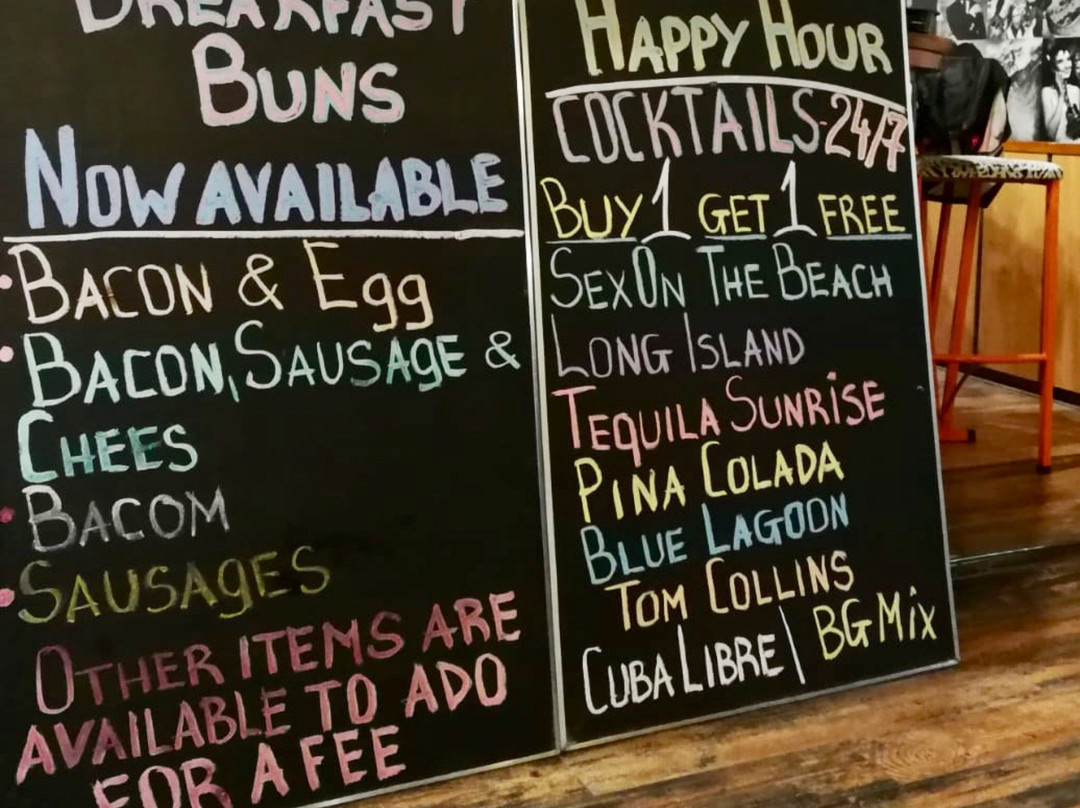 BREAKFAST
BUNS
NOW AVAILABLE
• BACON & Egg
• BACON, SAUSAgE &
CHEES
• BACOM
• SAUSAgES
OTHER ITEMS ARE
AVAILABLE TO ADO
FOR A FEE
HAPPY HOUR
COCKTAILS-24/7
BUY 1 GET 1 FREE
SEX ON THE BEACH
LONG ISLAND
TEQUILA SUNRiSE
PINA COLADA
BLUE LAGOON
TOM COLLINS
CUBA LIBRE | BG Mix